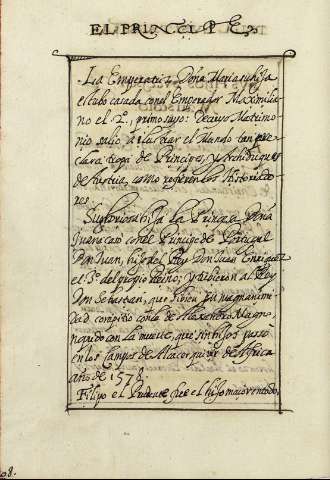 EL PRINCIPE
La Emperatriz Doña Maria su hija
estubo casada con el Emperador Maximilia
no el 2. primo suyo: De cuyo Matrimo
nio salio a ilustrar el Mundo tan pre
clara tropa de Principes, y Archiduques
de Austria, como refieren los Historiado
res.
Su gloriosa hija La Princesa Doña
Juana caso con el Principe de Portugal
Don Juan, hijo del Rey Don Juan
el 3. de aquel Reino; y tubieron al Rey
Don Sebastian, que si bien su magnanimi
dad compitio con la de Alexandro Magno
con la muerte, que sin hijos passo
en los Campos de Alcaçarquivir de Africa
año de 1578.
Filipo el Prudente fue el hijo maior en todo,
98.